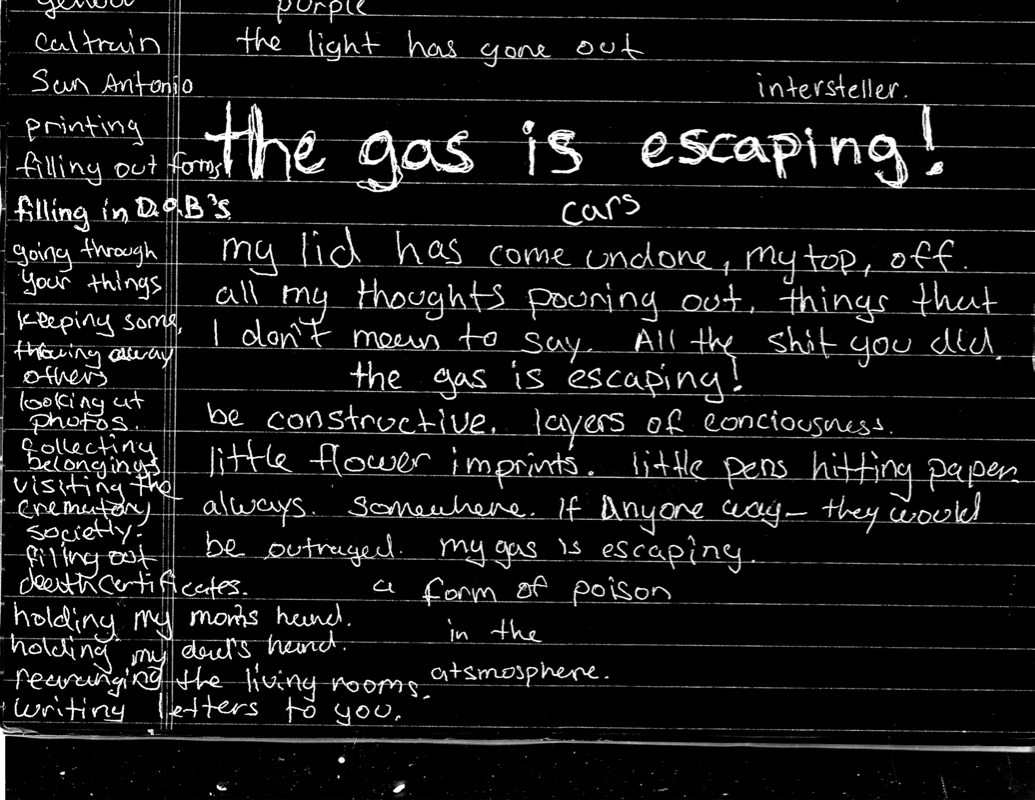 purple
Caltrain
the light has gone out
San Antonio
interstellar.
printing
the gas is escaping!
filling out forms
filling in D.O.B's
cars
going through
your things
my lid has come undone, my top, off.
all my thoughts pouring out, things that
keeping some,
I don't mean to say. All the shit you did.
throwing away
others
the gas is escaping!
looking at
photos.
be constructive. layers of conciousness.
collecting
belongings
little flower imprints. little pens hitting paper
visiting the
crematory
society.
always. somewhere. If Anyone way— they would
be outraged. my gas is escaping.
filling out
death certificates.
a form of poison
holding my mom's hand.
in the
holding my dad's hand.
atsmosphere.
rearranging the living rooms.
writing letters to you.